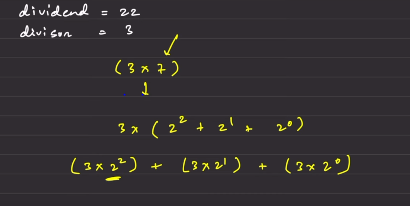 dividend = 22
divisor = 3
(3 x 7)
3 x ( 2² + 2¹ + 2⁰)
(3 x 2²) + (3 x 2¹) + (3 x 2⁰)